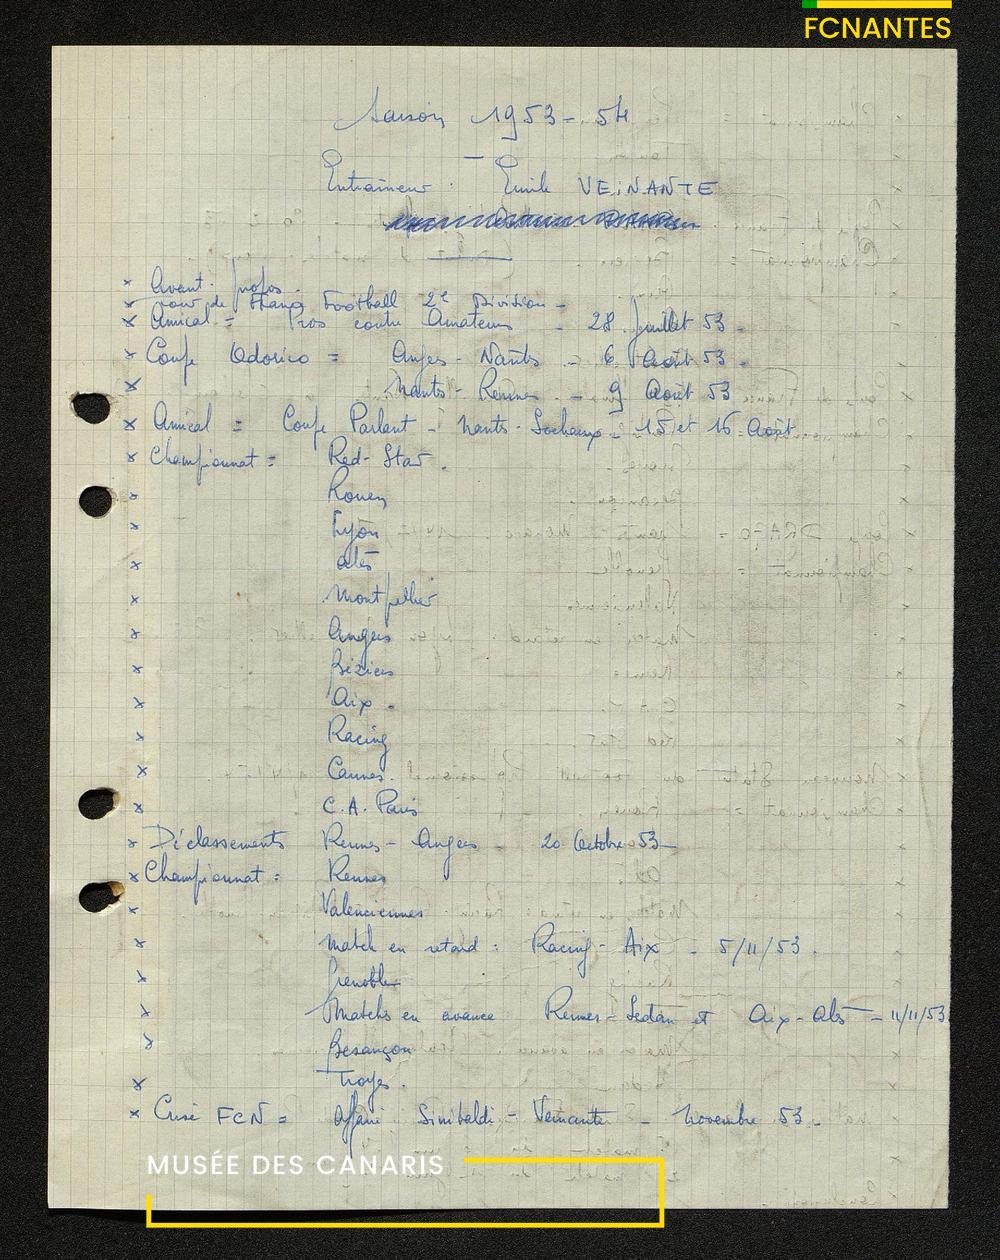 FCNANTES
Saison 1953-54
Entraîneur : Emile VEiNANTE
x Avant-propos.
x Tour de Football 2e Division -
x Amical = Pros contre Amateurs - 28 Juillet 53 -
x Coupe Odorico = Angers - Nantes - 6 Août 53 -
x Nantes - Rennes - 9 Août 53
x Amical = Coupe Parlant - Nantes - Sochaux - 15 et 16 Août
x Championnat = Red-Star.
x Rouen
x Lyon
x Alès
x Montpellier
x Angers
x Béziers
x Aix.
x Racing
x Cannes.
x C.A. Paris
x Déclassements Rennes - Angers - 20 Octobre 53 -
x Championnat : Rennes
x Valenciennes
x Match en retard : Racing - Aix - 5/11/53.
x Grenoble
x Matchs en avance Rennes - Sedan et Aix - Alès - 11/11/53
x Besançon
x Troyes.
x Crise FCN = Affaire Sinibaldi - Veinante - Novembre 53 -
MUSÉE DES CANARIS